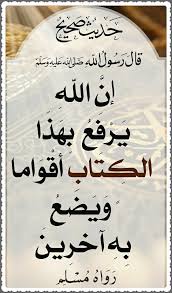 حديث صحيح
قال رسول الله صلى الله عليه وسلم
إن الله
يَرفعُ بِهَذَا
الكِتابِ أقْوَاما
وَيَضَعُ
بِهِ آخرِينَ
رَوَاهُ مُسْلم